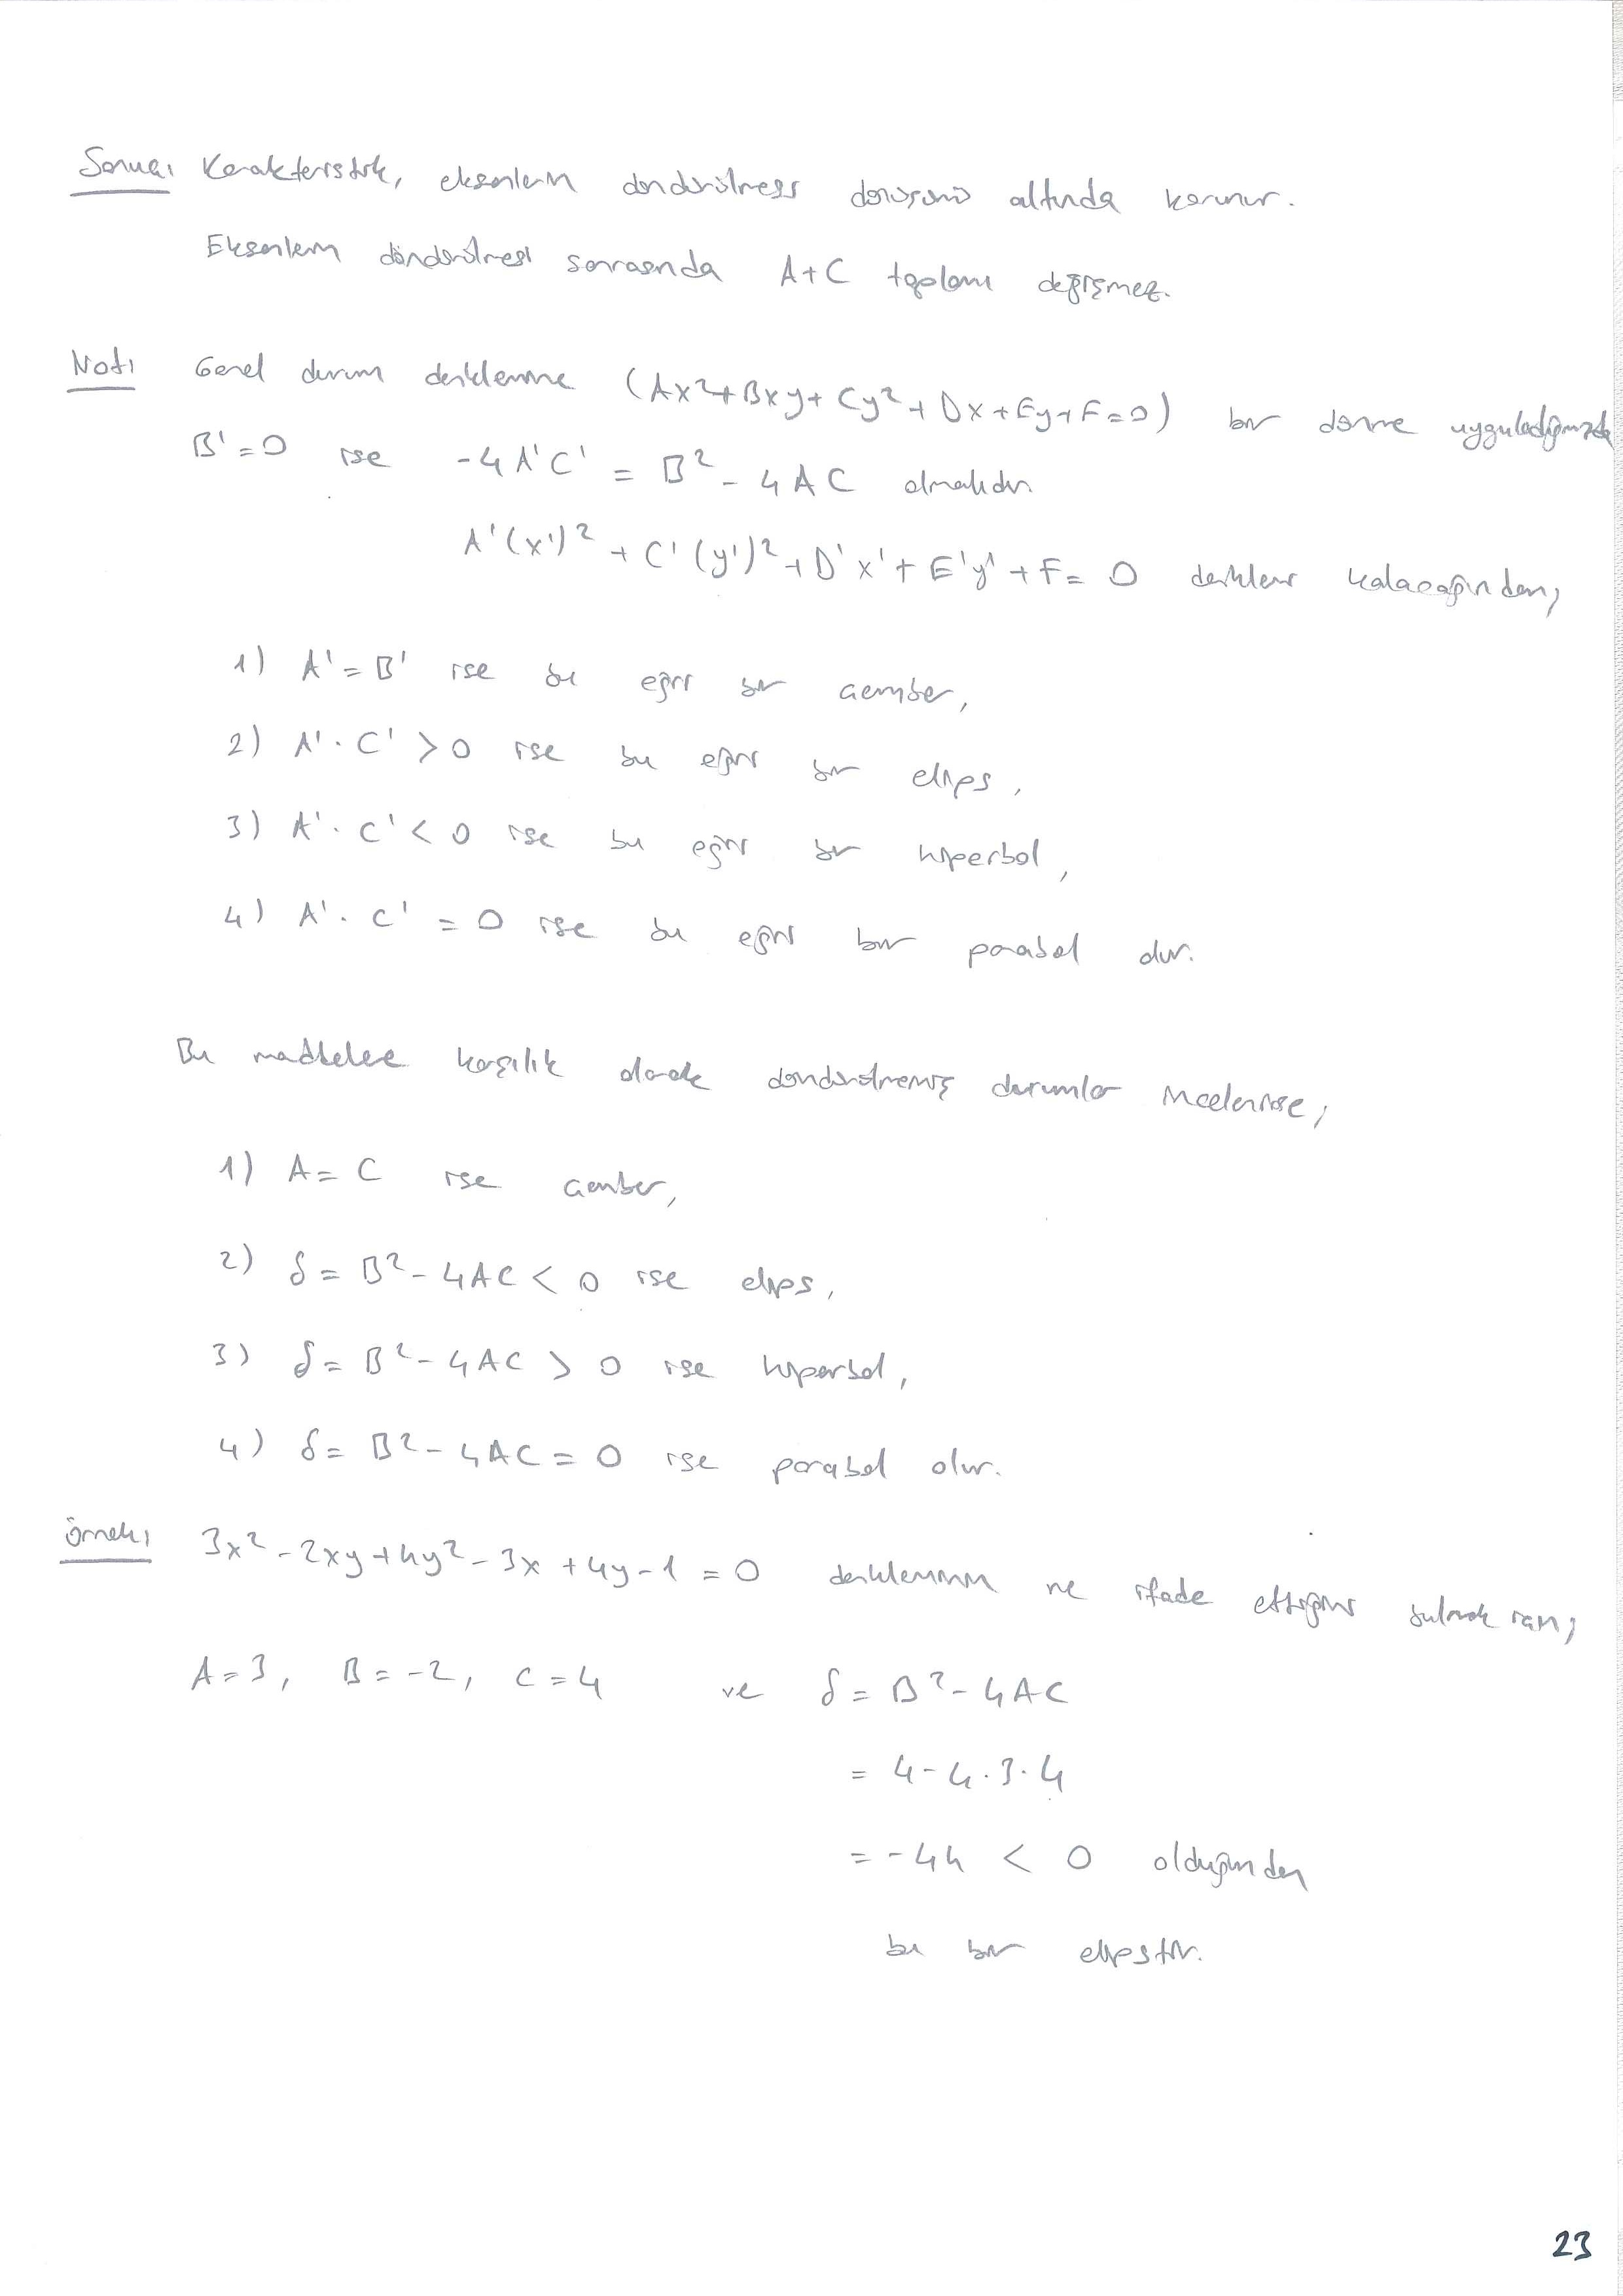 Sonuç: Karakteristik, eksenlerin döndürülmesi dönüşümü altında korunur.
Eksenlerin döndürülmesi sonrasında A+C toplamı değişmez.
Not: Genel durum denklemine (Ax²+Bxy+Cy²+Dx+Ey+F=0) bir dönme uyguladığımızda
B'=0 ise -4A'C' = B²-4AC olmalıdır
A'(x')²+C'(y')²+D'x'+E'y'+F=0 denklemi kalacağından,
1) A'=B' ise bu eğri bir çember,
2) A'·C'>0 ise bu eğri bir elips,
3) A'·C'<0 ise bu eğri bir hiperbol,
4) A'·C'=0 ise bu eğri bir parabol dur.
Bu maddelere karşılık olarak döndürülmemiş durumlar incelenirse;
1) A=C ise çember,
2) δ=B²-4AC<0 ise elips,
3) δ=B²-4AC>0 ise hiperbol,
4) δ=B²-4AC=0 ise parabol olur.
Örnek: 3x²-2xy+4y²-3x+4y-1=0 denkleminin ne ifade ettiğini bulmak için;
A=3, B=-2, C=4 ve δ=B²-4AC
= 4-4·3·4
= -44 < 0 olduğundan
bu bir elipstir.
23